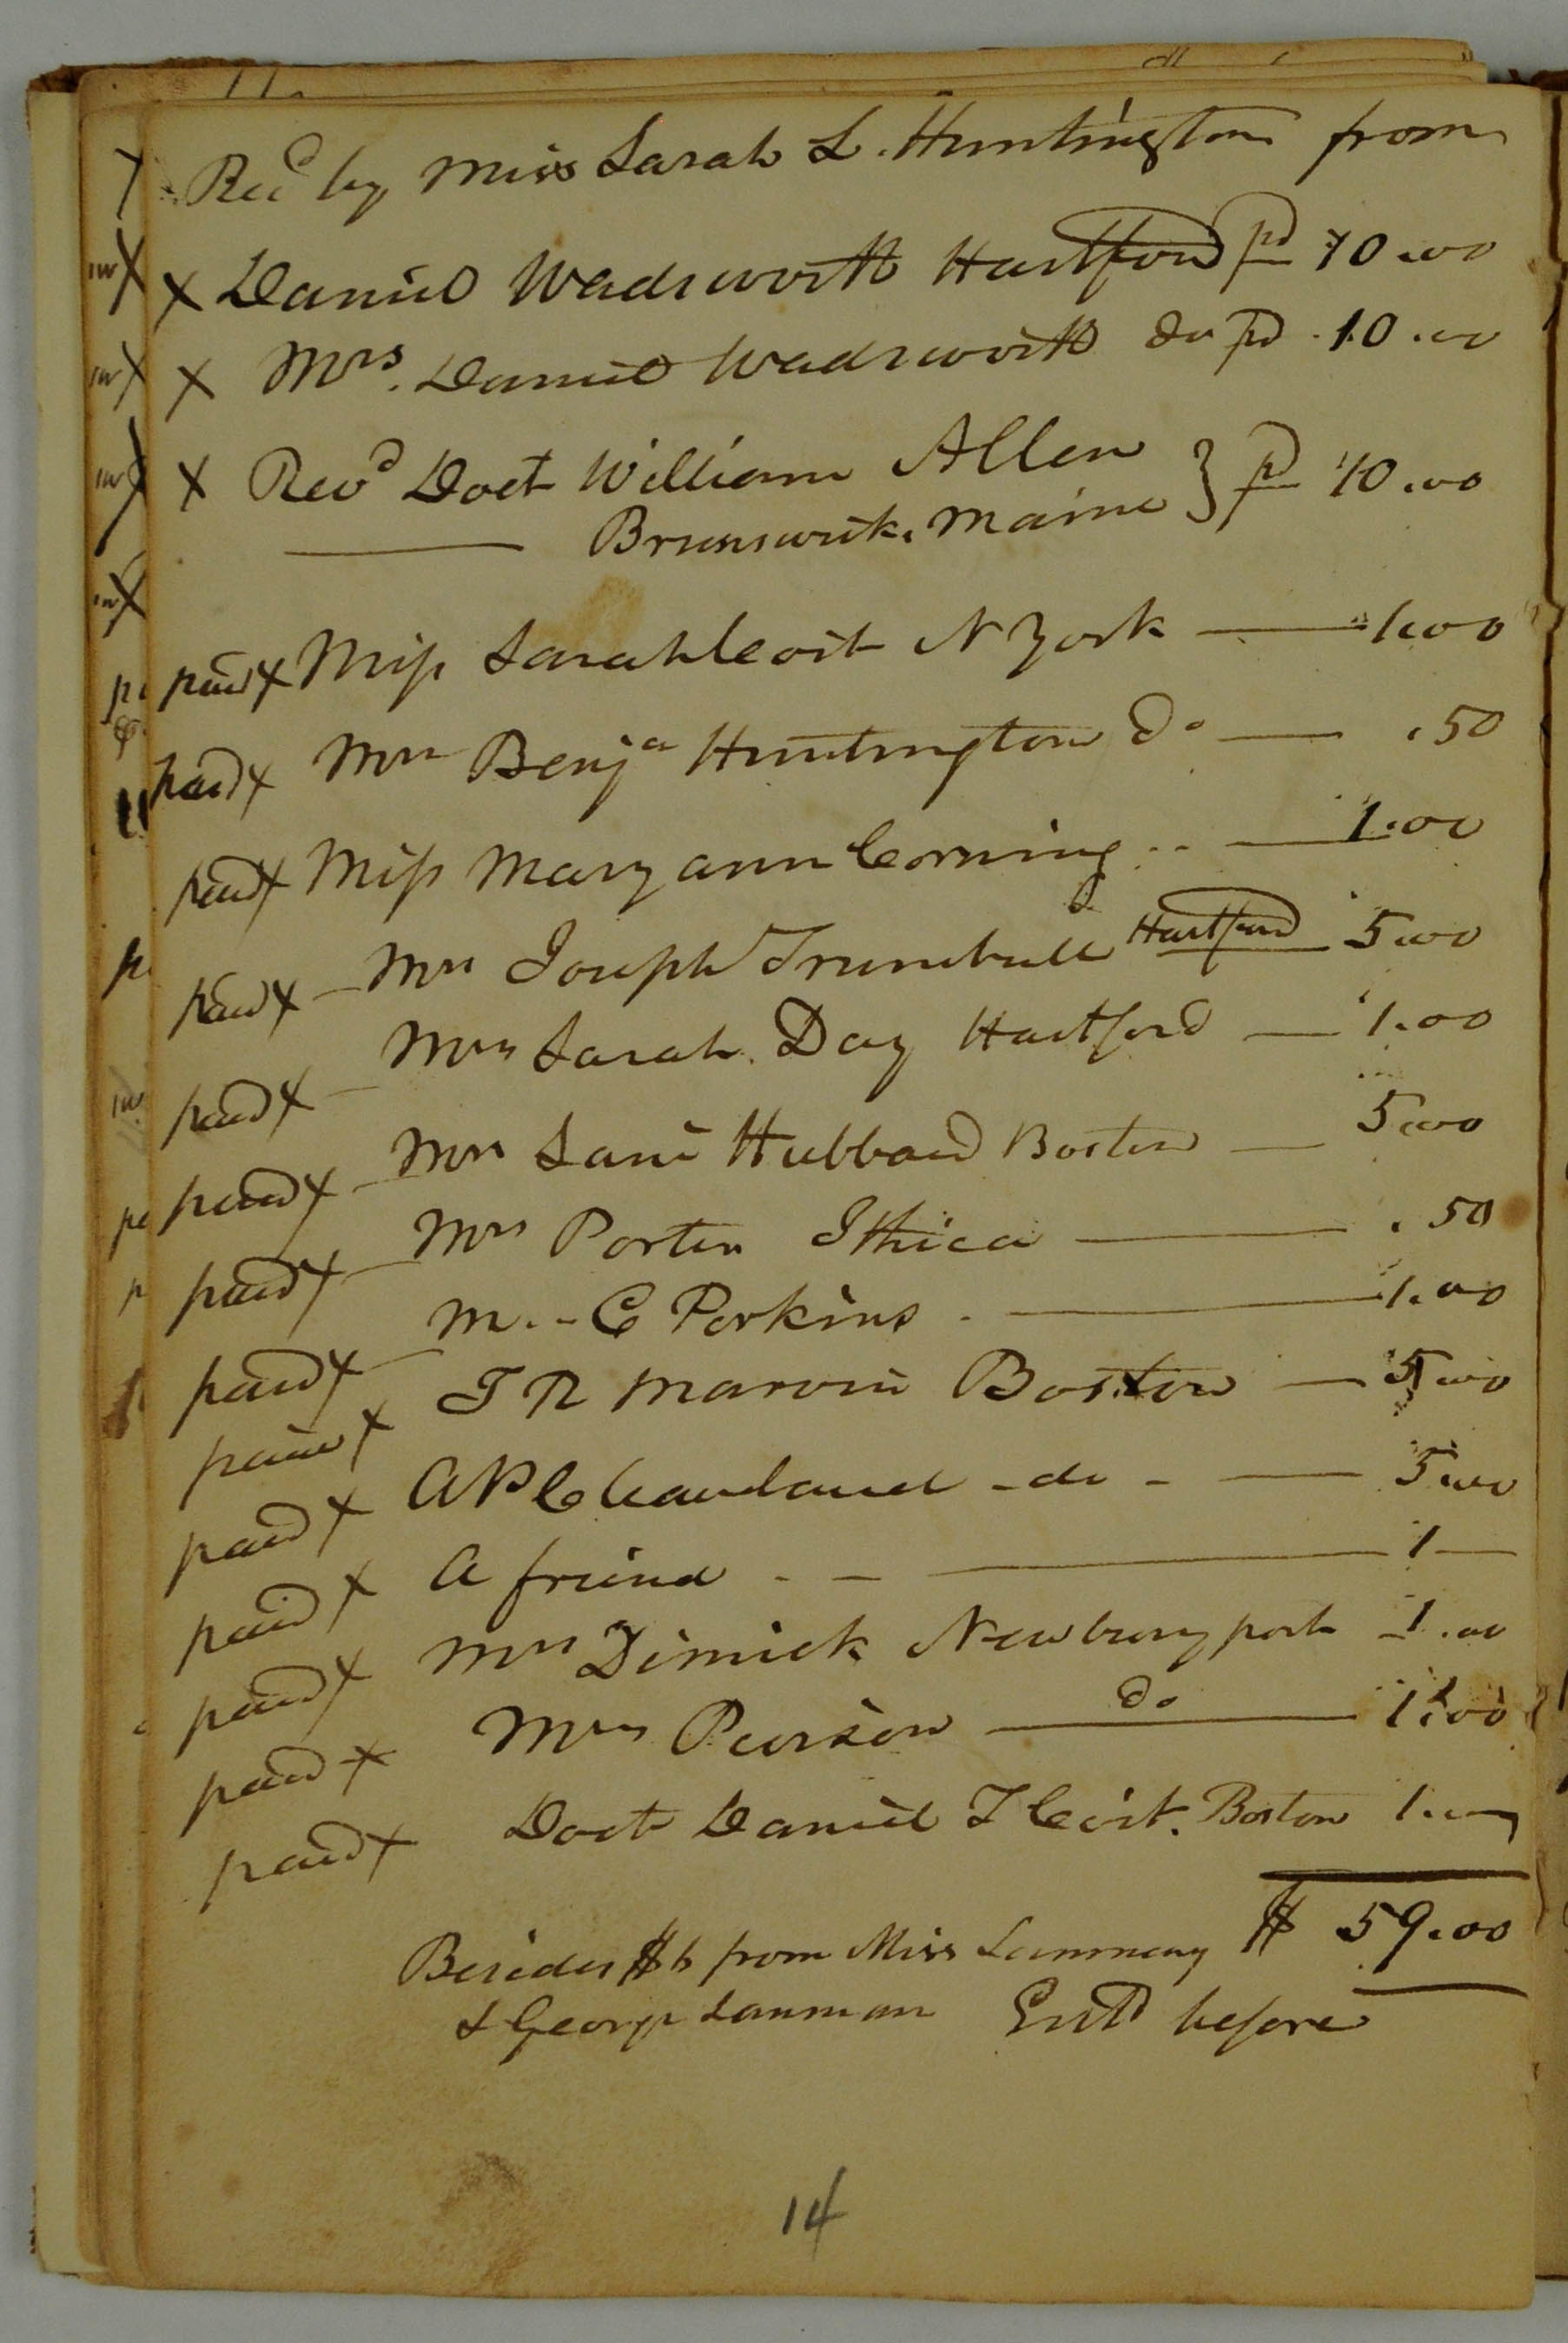 Recd by Miss Sarah L. Huntington from
x Daniel Wadsworth Hartford pd 10.00
x Mrs. Daniel Wadsworth do pd 10.00
x Revd Doct William Allen } pd 10.00
Brunswick, Maine
paid x Miss Sarah Coit N York — 1.00
paid x Mrs Benja Huntington do — .50
paid x Miss Mary ann Corning .. — 1.00
paid x — Mrs Joseph Trumbull Hartford 5.00
paid x — Mrs Sarah Day Hartford — 1.00
paid x — Mrs Hubbard Boston — 5.00
paid x — Mrs Porter Ithica — .50
paid x — M.. C Perkins — 1.00
paid x T R Marvin Boston — 5.00
paid x A P Cleaveland - do - — 5.00
paid x A friend - — 1 —
paid x Mrs Dimick Newburyport — 1.00
paid x Mrs Pearson — do — 1.00
paid x Doct Daniel T Coit. Boston 1.00
$ 59.00
Besides $6 from Miss
& George Lanman Entd before
14